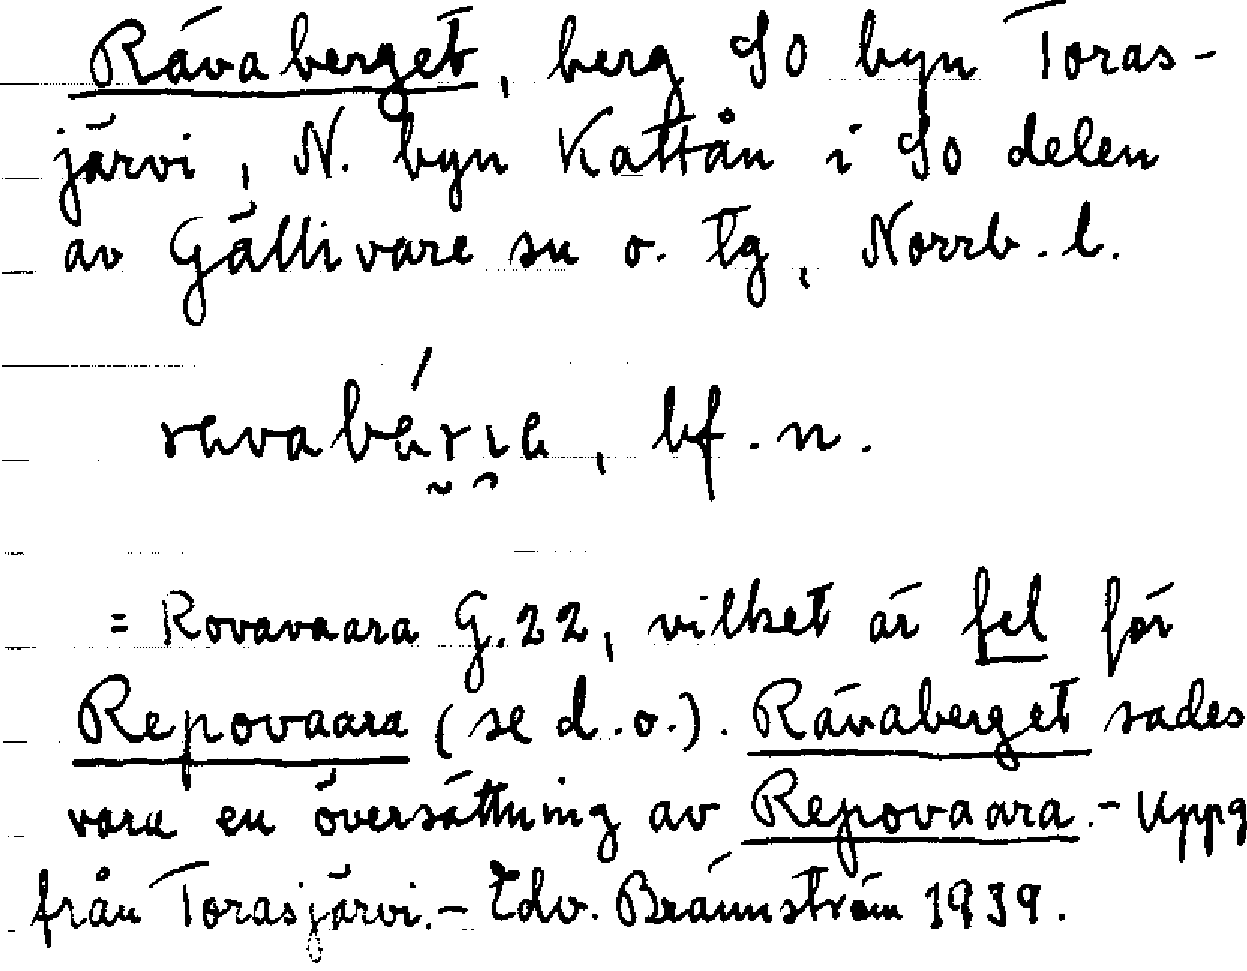 Rävaberget, berg SO byn Toras-
järvi, N. byn Kattån i SO delen
av Gällivare sn o. tg, Norrb. l.
bf. n.
= Rovavaara G. 22, vilket är fel för
Repovaara (se d. o.). Rävaberget sades
vara en översättning av Repovaara. - Uppg
från Torasjärvi. - Edv. Brännström 1939.